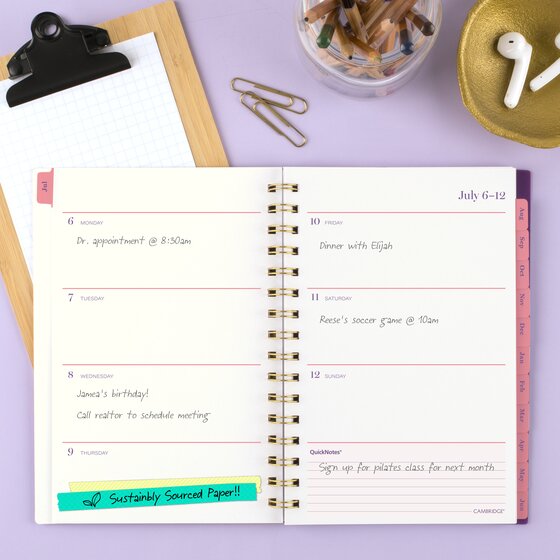 Jul
6 MONDAY
Dr. appointment @ 8:30am
7 TUESDAY
8 WEDNESDAY
Jamea's birthday!
Call realtor to schedule meeting
9 THURSDAY
Sustainbly Sourced Paper!!
July 6–12
10 FRIDAY
Dinner with Elijah
11 SATURDAY
Reese's soccer game @ 10am
12 SUNDAY
QuickNotes®
Sign up for pilates class for next month
CAMBRIDGE®
Aug
Sep
Oct
Nov
Dec
Jan
Feb
Mar
Apr
May
Jun